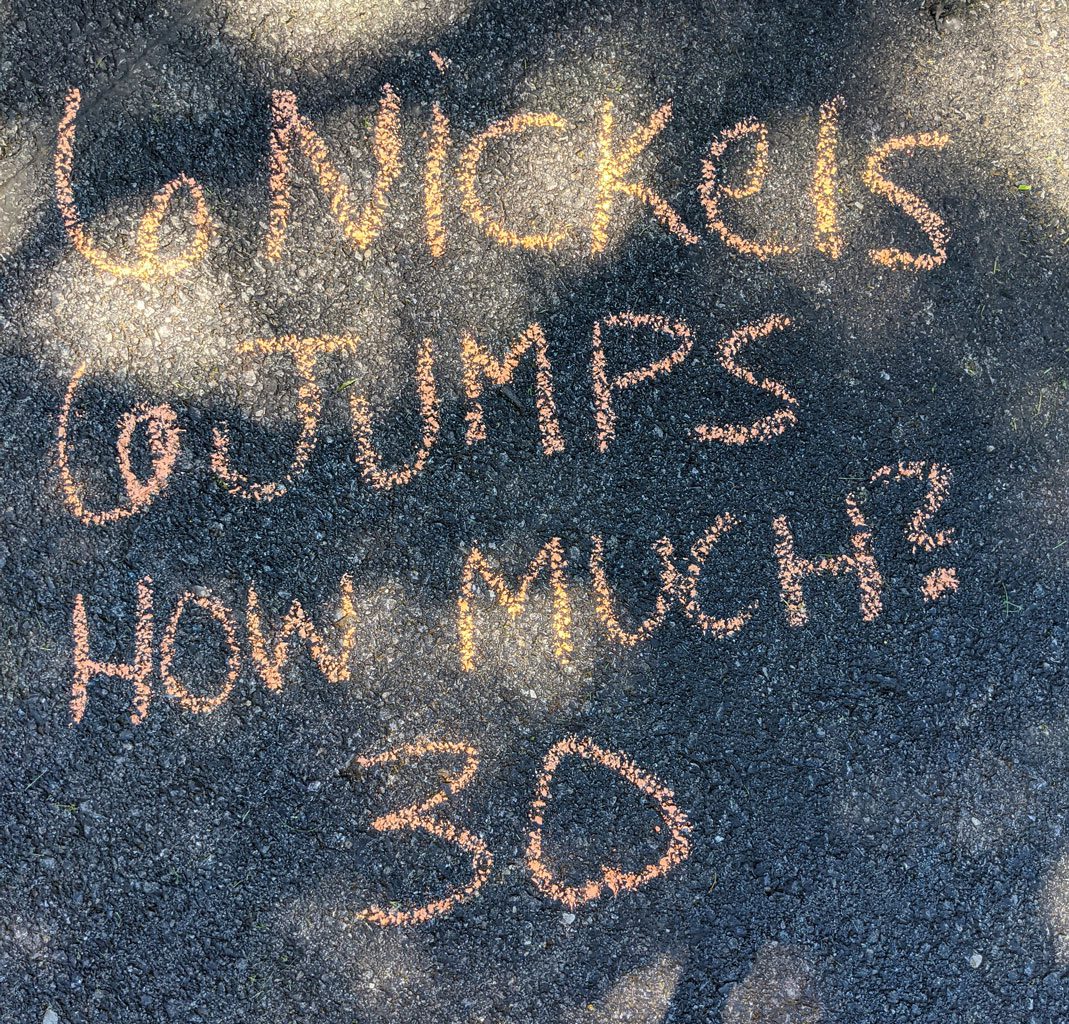 6 NiCKelS
6 JUMPS
HOW MUCH?
30